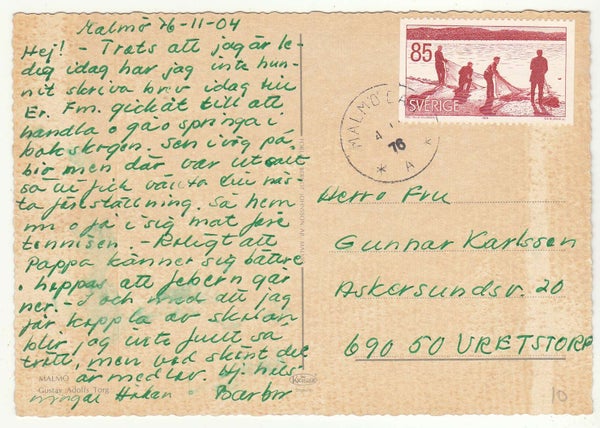 Malmö 76-11-04
Hej! - Trots att jag är le-
dig idag har jag inte hun-
nit skriva brev idag till
Er. Fm. gick åt till att
handla o gå o springa i
bokskogen. Sen iväg på
bio men där var utsålt
så vi fick vänta till näs-
ta föreställning. Så hem
nu o få i sig mat före
tennisen. - Roligt att
Pappa känner sig bättre
o hoppas att febern går
ner. - I och med att jag
får koppla av skolan
blir jag inte fullt så
trött, men vad skönt det
är med lov. Hj. häls-
ningar Håkan Barbro
MALMÖ
Gustav Adolfs Torg
85
SVERIGE
MALMÖ
4
76
* A *
Herr o Fru
Gunnar Karlsson
Askersundsv. 20
690 50 VRETSTORP
10